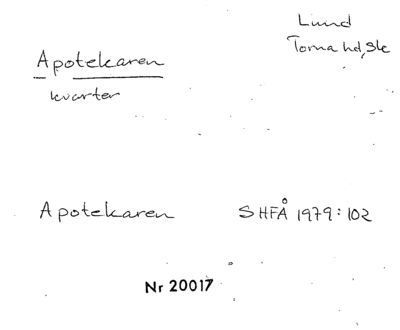 Lund
Torna hd, Sk
Apotekaren
kvarter
Apotekaren SHFÅ 1979:102
Nr 20017